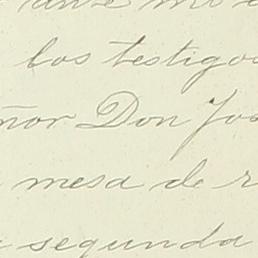 ante mi
los testigos
ñor Don Jos
mesa de r
segunda